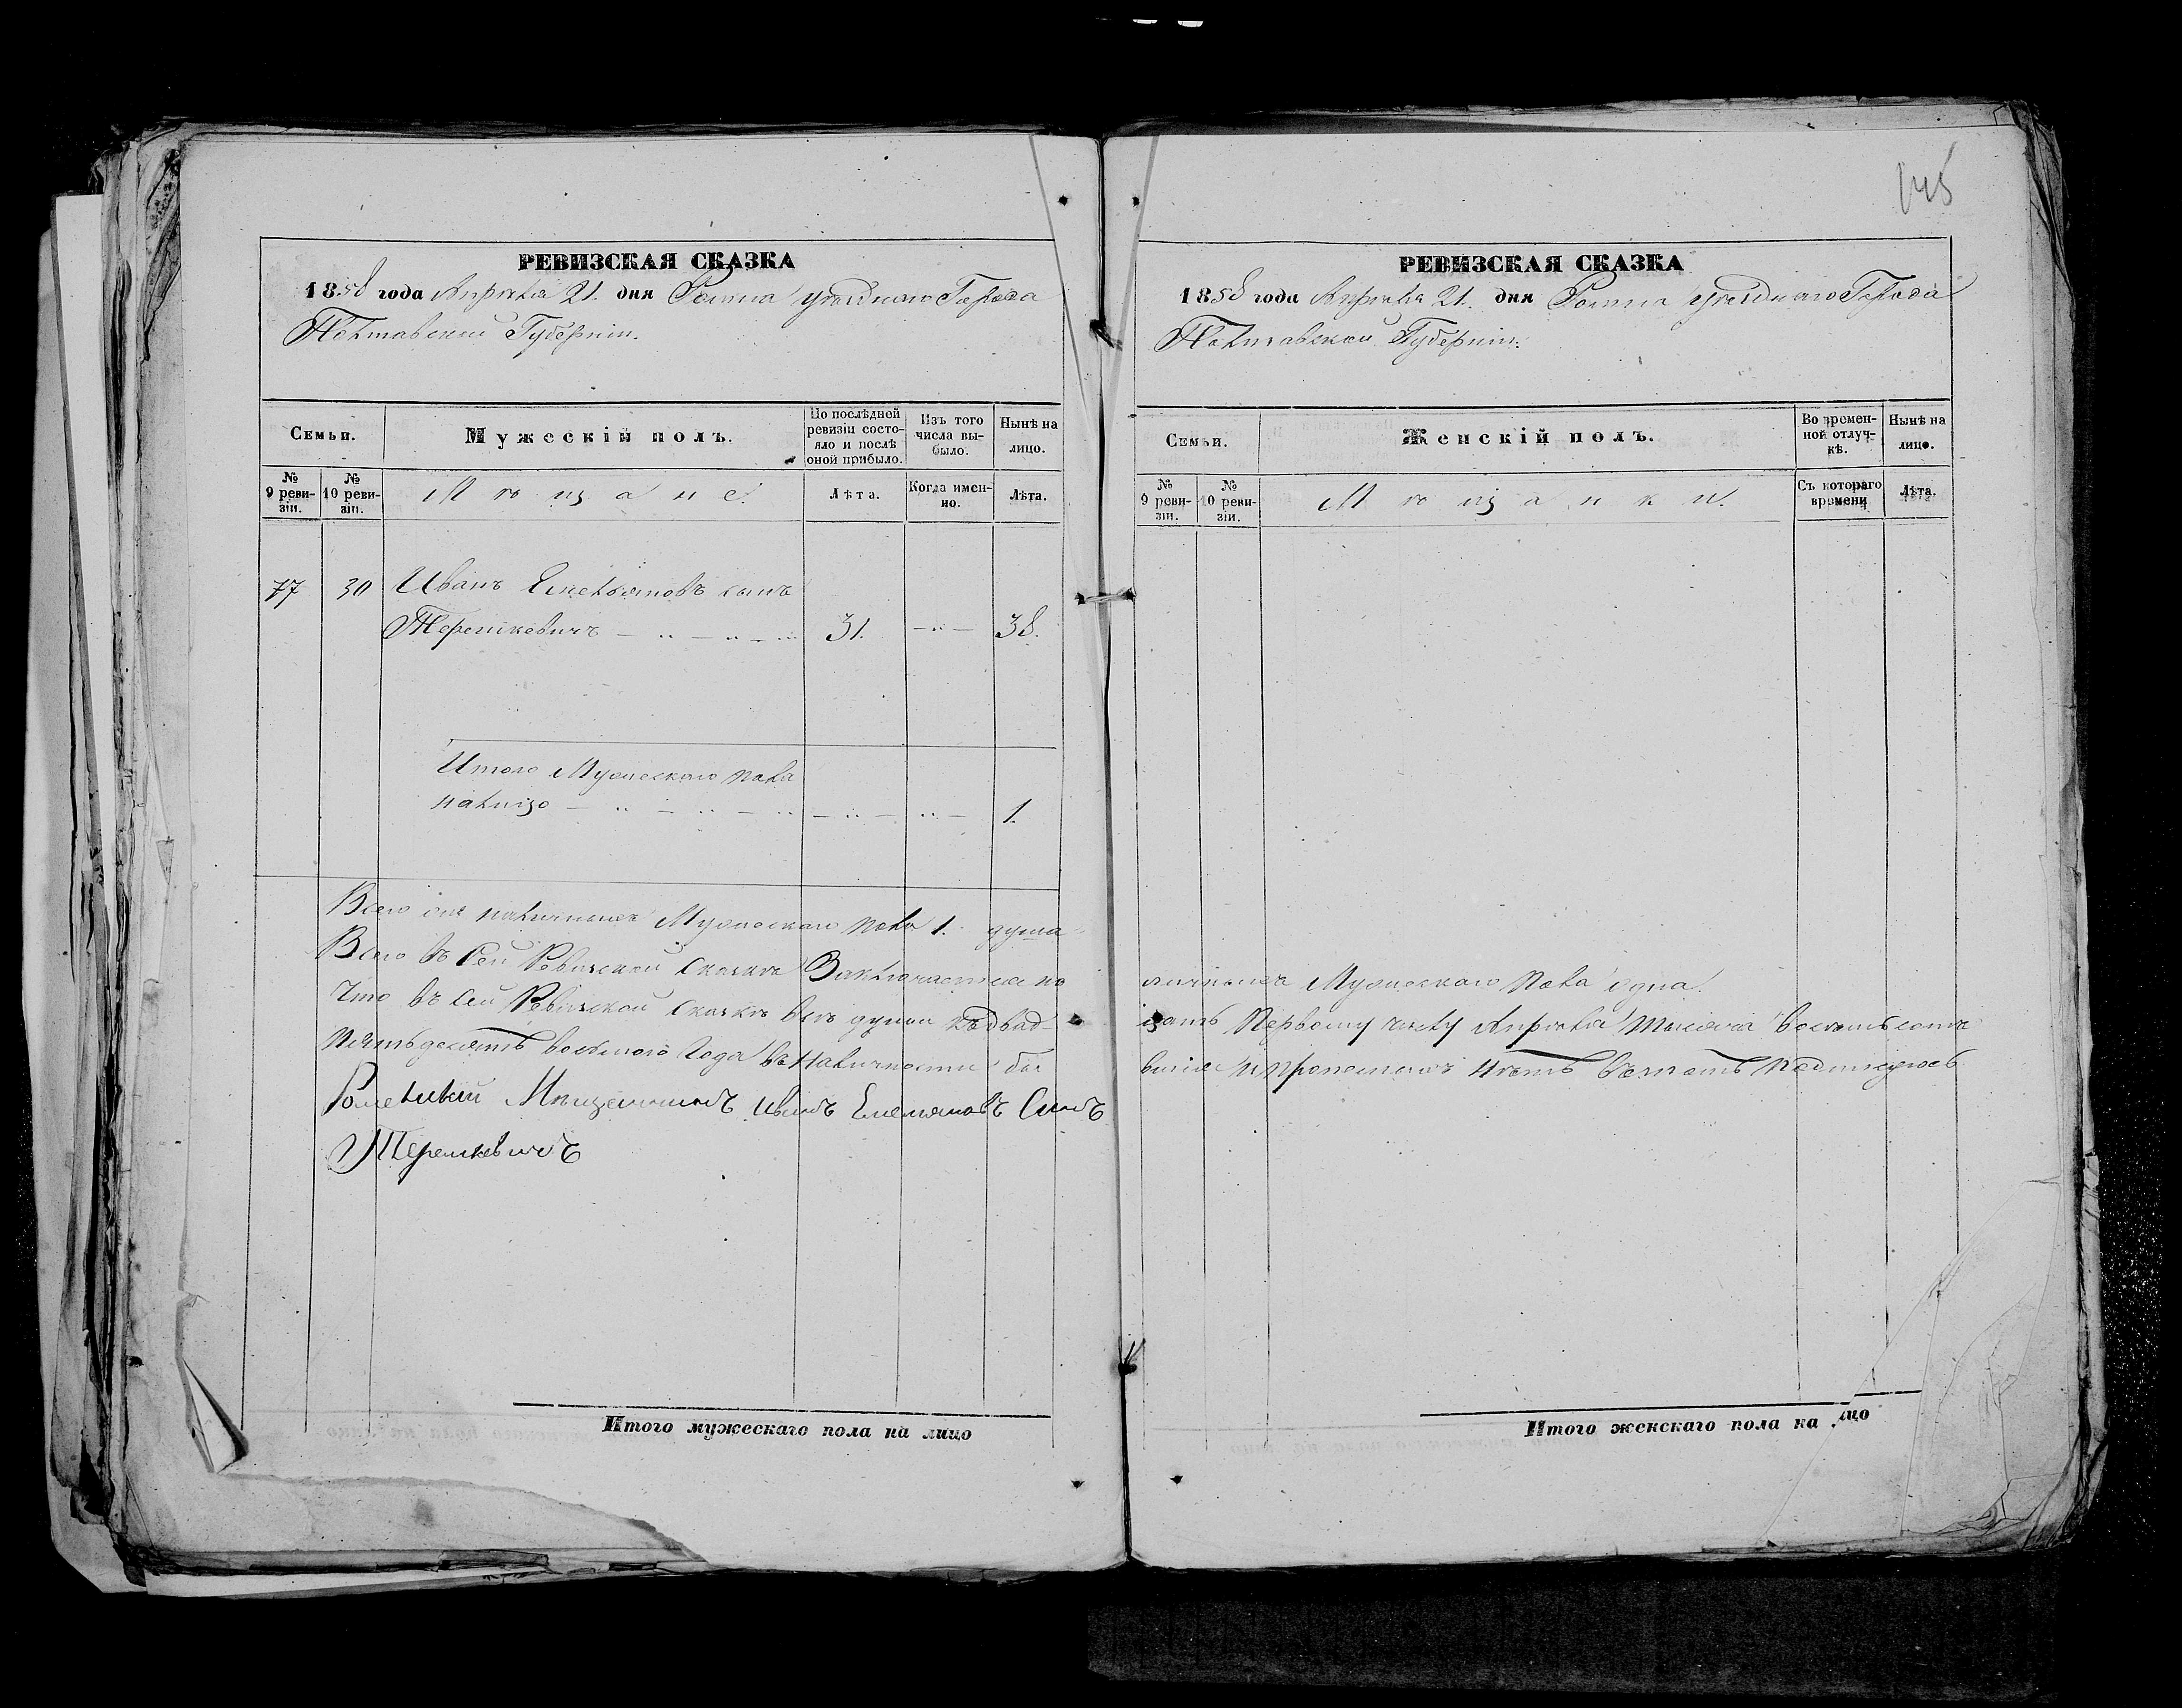 145
РЕВИЗСКАЯ СКАЗКА
1858 года Апрѣля 21. дня Ромна уѣзднаго Города
Полтавской Губерніи.
Семьи.
Мужескій полъ.
По послѣдней ревизіи состояло и послѣ оной прибыло.
Изъ того числа выбыло.
Нынѣ на лицо.
№ 9 ревизіи.
№ 10 ревизіи.
Мѣщане.
Лѣта.
Когда именно.
Лѣта.
77 30 Иванъ Емельяновъ сынъ
Терешкевичъ — „ — „ — „ 31. — „ — 38.
Итого Мужескаго пола
налицо — „ — „ — „ — „ — „ — 1.
Всего онѣ наличныхъ Мужескаго пола 1. душа
Всего въ сей Ревизской Сказкѣ Заключается на
Что въ сей Ревизской Сказкѣ всѣ души къ двад-
пятьдесятъ восьмого Года въ Наличности бы
Роменский Мѣщанинъ Иванъ Емельяновъ Синъ
Терешкевичъ
Итого мужескаго пола на лицо
РЕВИЗСКАЯ СКАЗКА
1858 года Апрѣля 21. дня Ромна уѣзднаго Города
Полтавской Губерніи.
Семьи.
Женскій полъ.
Во временной отлучкѣ.
Нынѣ на лицо.
№ 9 ревизіи.
№ 10 ревизіи.
Мѣщанки.
Съ котораго времени
Лѣта.
личныхъ Мужескаго пола одна.
цать Первому числу Апрѣля тысяча восемьсотъ
вшіе и пропешихъ нѣтъ въ томъ подпишуюсь
Итого женскаго пола на лицо